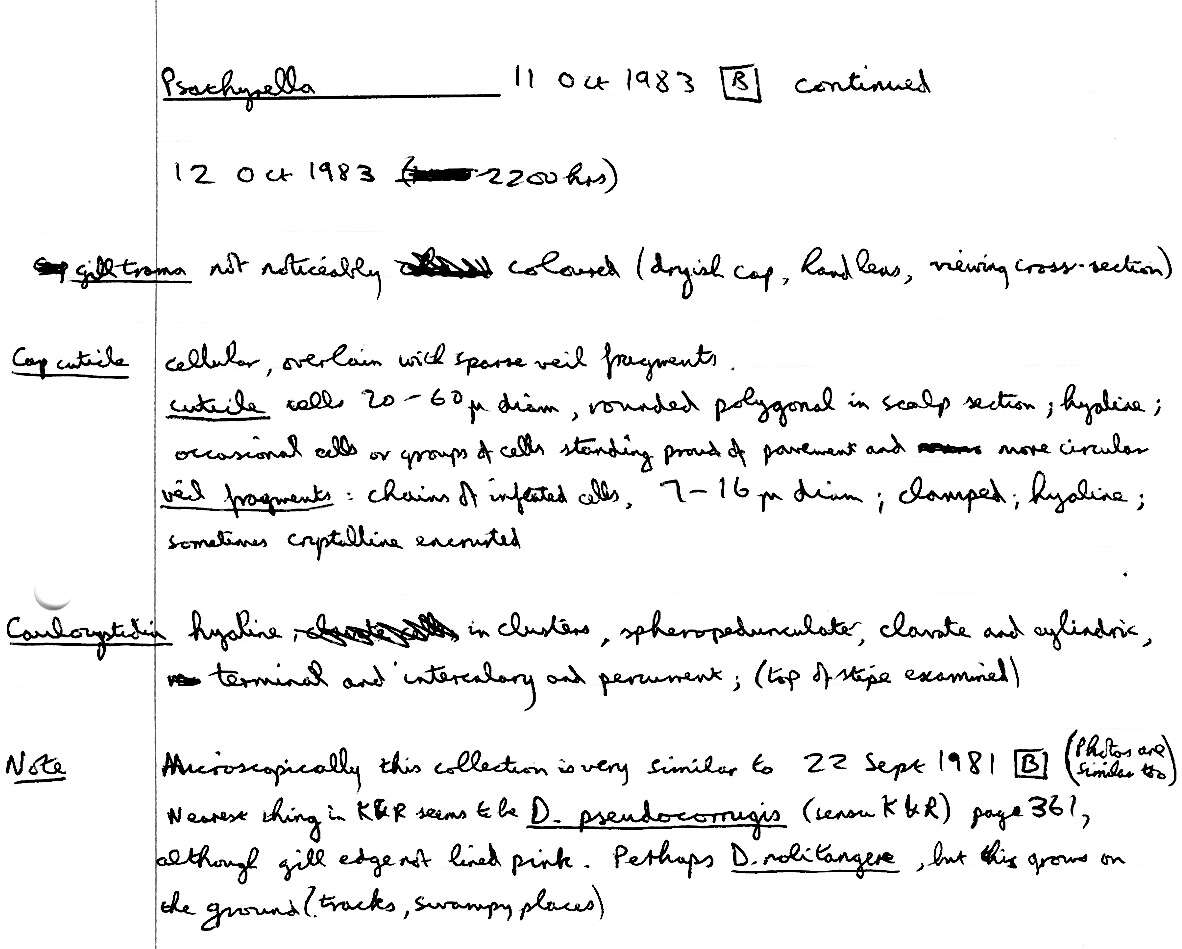 Psathyrella 11 Oct 1983 B continued
12 Oct 1983 ( 2200 hrs)
gill trama not noticeably coloured (dryish cap, hand lens, viewing cross-section)
Cap cuticle cellular, overlain with sparse veil fragments.
cuticle cells 20-60 μ diam, rounded polygonal in scalp section; hyaline;
occasional cells or groups of cells standing proud of pavement and more circular
veil fragments: chains of inflated cells, 7-16 μ diam; clamped; hyaline;
sometimes crystalline encrusted
Caulocystidia hyaline, in clusters, spheropedunculate, clavate and cylindric,
terminal and intercalary and percurrent; (top of stipe examined)
Note Microscopically this collection is very similar to 22 Sept 1981 B (Photos are similar too)
Nearest thing in K&R seems to be D. pseudocorrugis (sensu K&R) page 361,
although gill edge not lined pink. Perhaps D. nolitangere, but this grows on
the ground (? tracks, swampy places)